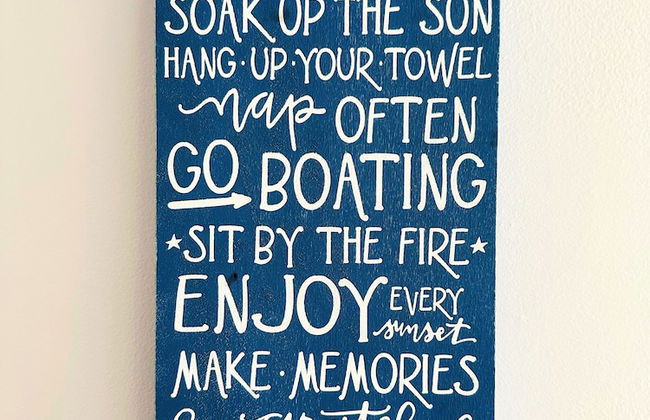 SOAK UP THE SUN
HANG·UP·YOUR·TOWEL
nap OFTEN
GO BOATING
★SIT BY THE FIRE★
ENJOY EVERY sunset
MAKE·MEMORIES